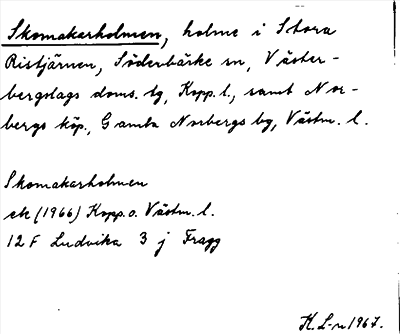 Skomakarholmen, holme i Stora
Ristjärnen, Söderbärke sn, Väster-
bergslags doms. tg, Kopp. l., samt Nor-
bergs köp., Gamla Norbergs bg, Västm. l.
Skomakarholmen
ek (1966) Kopp. o. Västm. l.
12 F Ludvika 3 j Fragg
K. L-n 1967.